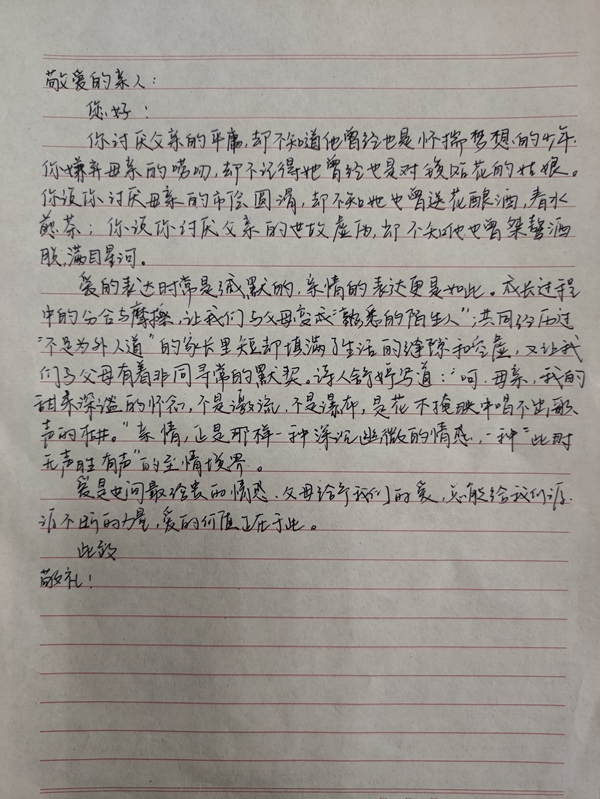 敬爱的亲人：
您好！
你讨厌父亲的平庸，却不知道他曾经也是怀揣梦想的少年.
你嫌弃母亲的唠叨，却不记得她曾经也是对镜贴花的姑娘。
你说你讨厌母亲的市侩圆滑，却不知她也曾送花酿酒，春水
煎茶；你说你讨厌父亲的世故虚伪，却不知他也曾桀骜洒
脱，满目星河。
爱的表达时常是缄默的，亲情的表达更是如此。成长过程
中的分合与摩擦，让我们与父母变成“熟悉的陌生人”；共同经历过
“不足为外人道”的家长里短却填满了生活的缝隙和空虚，又让我
们与父母有着非同寻常的默契。诗人舒婷写道：“呵，母亲，我的
甜柔深谧的怀念，不是激流，不是瀑布，是花木掩映中唱不出歌
声的古井。”亲情，正是那样一种深沉幽微的情感，一种“此时
无声胜有声”的至情境界。
爱是世间最珍贵的情感，父母给予我们的爱，总能给我们源
源不断的力量，爱的价值正在于此。
此致
敬礼！